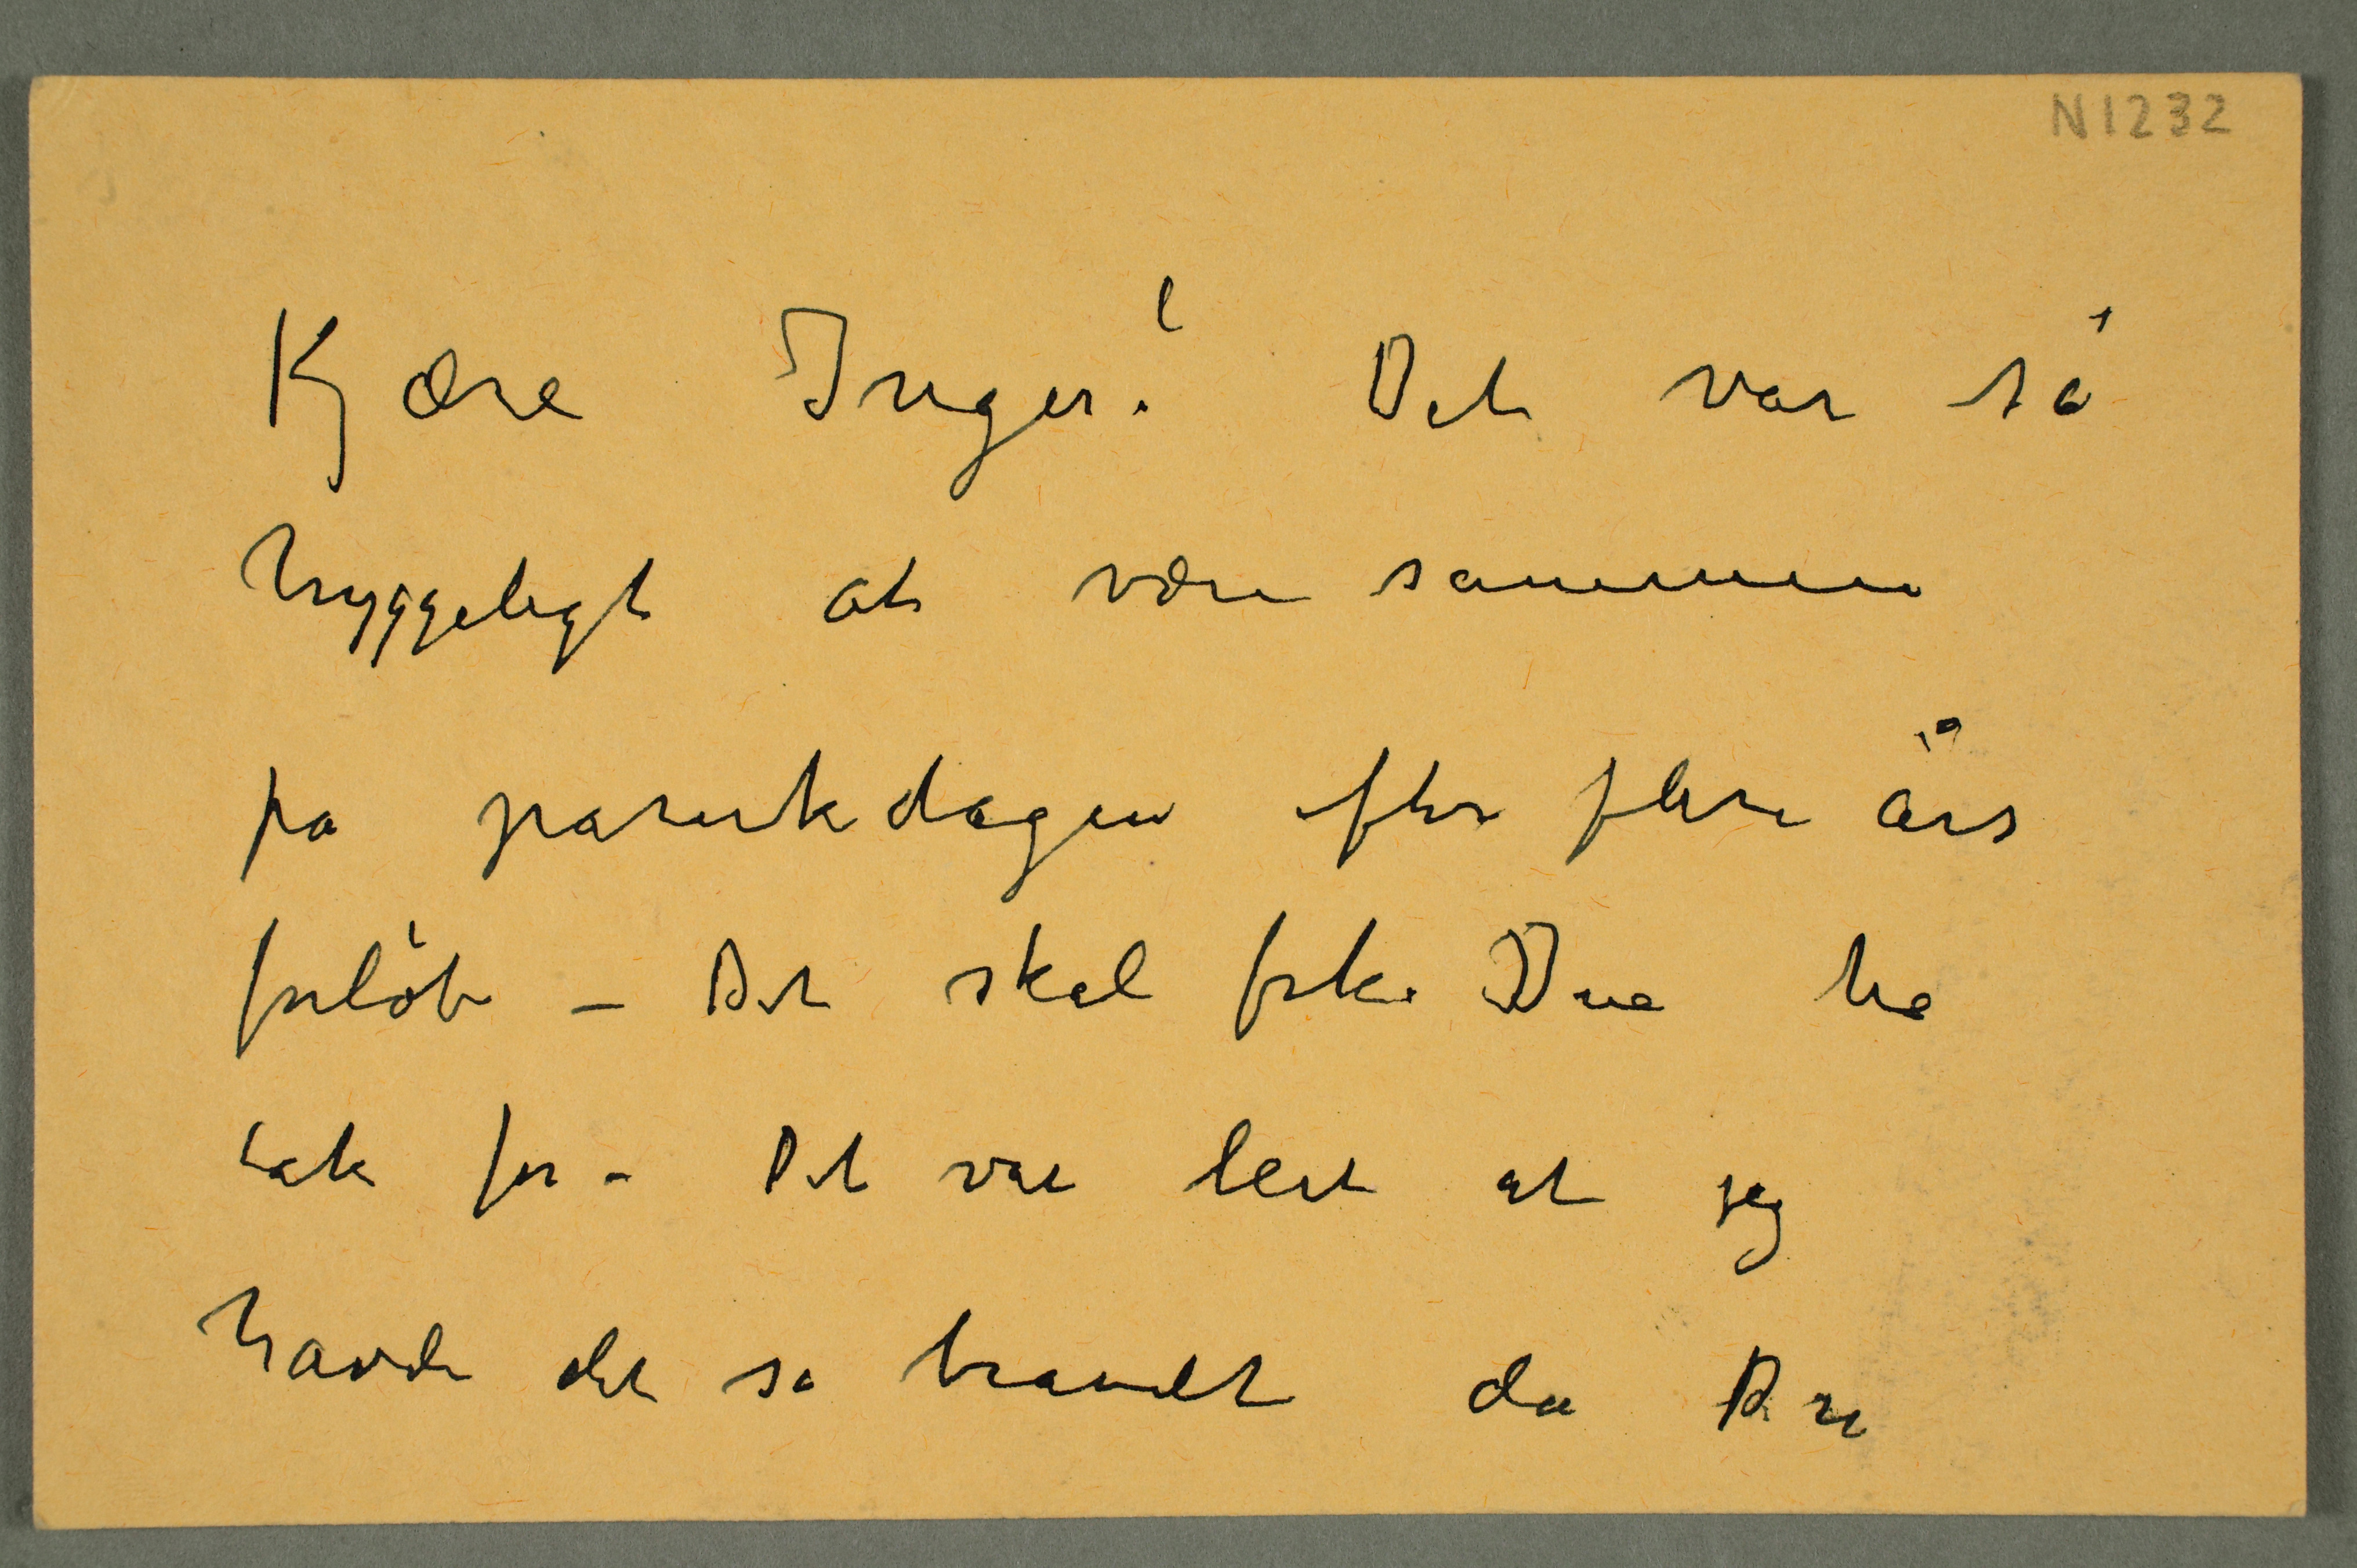 N1232
Kjære Inger! Det var så
hyggeligt at være sammen
på påskedagen efter flere års
forløb – Det skal frk. Due ha
tak for – Det var leit at jeg
havde det så travelt da Dere